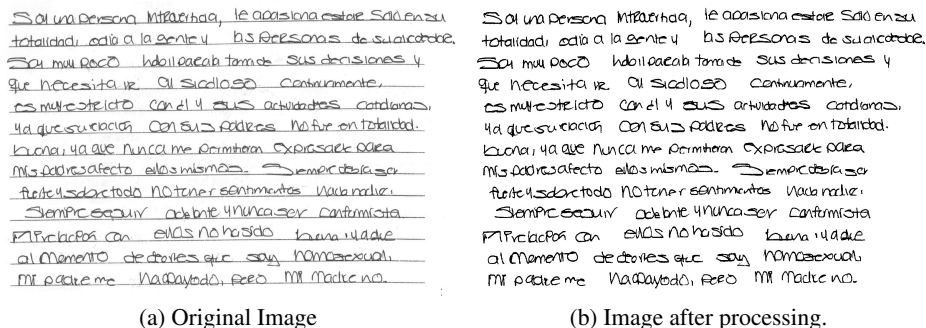 Soy una persona Intravertida, le apasiona estar Solo en su
totalidad, odia a la gente y las personas de su alrededor.
Soy muy poco tomando sus decisiones y
que necesita ir al sicologo Continuamente,
es muy estricto con el y sus actividades cotidianas,
ya que su relacion con sus padres no fue en totalidad.
buena, ya que nunca me permitieron expresarle para
mis padres afecto ellos mismos. Siempre debía ser
fuerte y sobre todo no tener sentimentos hacia nadie.
Siempre seguir adelante y nunca ser conformista
Mi relación con ellos no ha sido buena, ya que
al Momento de decirles que soy homosexual,
mi padre me ha apoyado, pero mi Madre no.
(a) Original Image
Soy una persona Intravertida, le apasiona estar Solo en su
totalidad, odia a la gente y las personas de su alrededor.
Soy muy poco tomando sus decisiones y
que necesita ir al sicologo Continuamente,
es muy estricto con el y sus actividades cotidianas,
ya que su relacion con sus padres no fue en totalidad.
buena, ya que nunca me permitieron expresarle para
mis padres afecto ellos mismos. Siempre debía ser
fuerte y sobre todo no tener sentimentos hacia nadie.
Siempre seguir adelante y nunca ser conformista
Mi relación con ellos no ha sido buena, ya que
al Momento de decirles que soy homosexual,
mi padre me ha apoyado, pero mi Madre no.
(b) Image after processing.